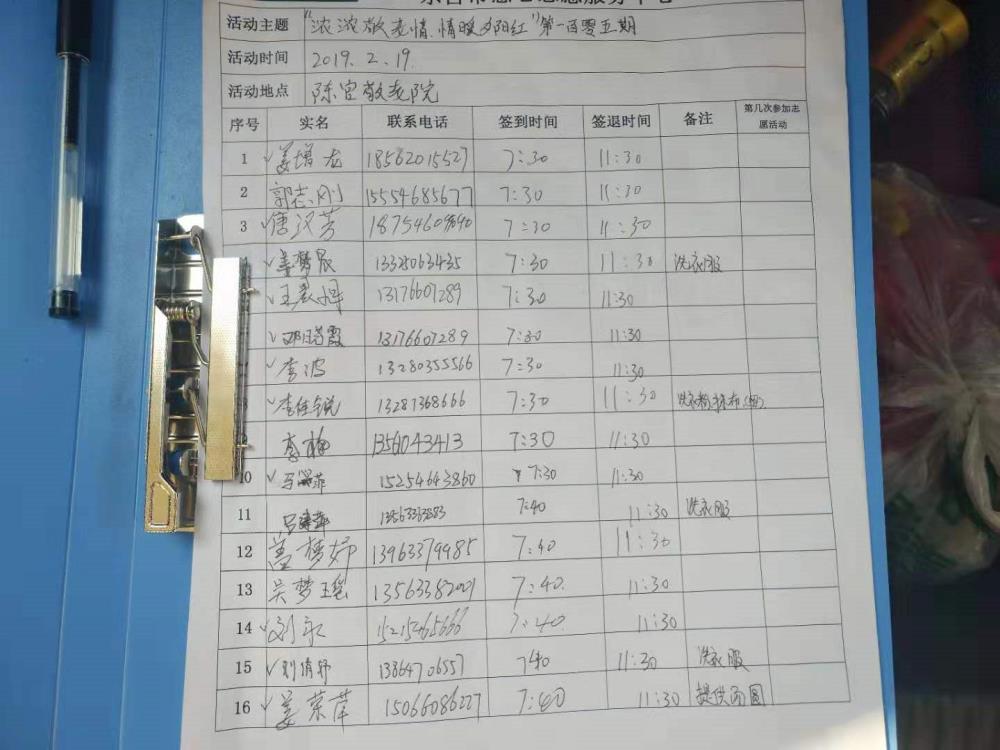 活动主题 "浓浓敬老情.情暖夕阳红"第一百零五期
活动时间 2019.2.19.
活动地点 陈官敬老院
序号 实名 联系电话 签到时间 签退时间 备注 第几次参加志愿活动
1 姜增龙 18562015527 7:30 11:30
2 郭志刚 15554685677 7:30 11:30
3 唐汉芳 18754609890 7:30 11:30
姜梦辰 13325063435 7:30 11:30 洗衣服
13176607289 7:30 11:30
13176607289 7:30 11:30
李波 13280355566 7:30 11:30
李佳锐 13281368666 7:30 11:30
李梅 1356043413 7:30 11:30
10 15254643860 7:30 11:30
11 7:40 11:30 洗衣服
12 盖梦妤 13963379985 7:40 11:30
13 吴梦瑶 13563382021 7:40. 11:30
14 刘永 15215465666 7:40 11:30
15 刘倩妤 13864706557 7:40 11:30 洗衣服
16 姜荣萍 15066086227 7:40 11:30 提供汤圆